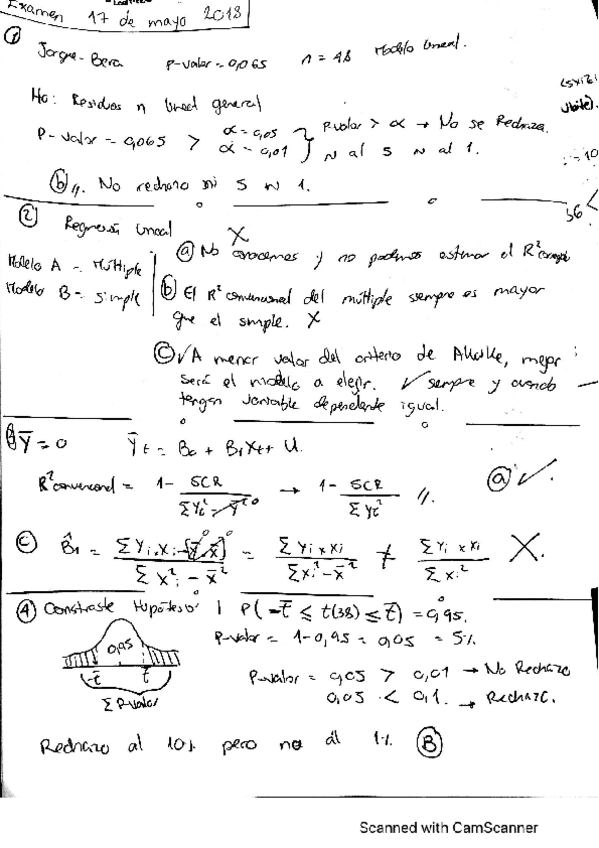 Examen 17 de mayo 2018
① Jarque-Bera p-valor = 0,065 n = 48 Modelo lineal.
H0: Residuos n lineal general
P-valor = 0,065 > α = 0,05 P valor > α → No se Rechaza.
α = 0,01 N al 5 N al 1.
ⓑ No rechazo ni 5 n 1.
② Regresión lineal X
Modelo A = Múltiple
Modelo B = simple
ⓐ No conocemos y no podemos estimar el R² corregido
ⓑ El R² convencional del múltiple siempre es mayor
que el simple. X
ⓒ ✓ A menor valor del criterio de Akaike, mejor
será el modelo a elegir. ✓ siempre y cuando
tengan variable dependiente igual.
③ Ȳ = 0 Ȳt = B0 + B1Xt + U.
R² convencional = 1 - SCR / ΣYi² - Ȳ² 0 → 1 - SCR / ΣYt² //. ⓐ ✓.
ⓒ B̂1 = ΣYi·Xi - [Ȳ·X̄] / ΣX²i - X̄² = ΣYi × Xi / ΣXi² - X̄² ≠ ΣYi × Xi / ΣXi² X.
④ Constraste Hipótesis | P(-t̄ ≤ t(38) ≤ t̄) = 0,95.
P-valor = 1 - 0,95 = 0,05 = 5%
0,95
-t̄ t̄
Σ P-valor
P-valor = 0,05 > 0,01 → No Rechazo
0,05 < 0,1. → Rechazo.
Rechazo al 10% pero no al 1% Ⓑ
Scanned with CamScanner